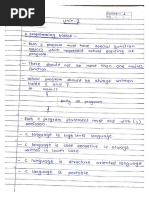 Unit-1
C programming basics :-
- Each C program must have special function
main(), which represent actual starting of
program.
- There should not be more than one main()
- Main program should be always written
inside { and }
entry of program
- Each C program statement must end with (;)
semicolon
- C language is high level language.
- C language is case sensitive is always
written in lower case.
- C language is structure oriented language
- C language is portable.